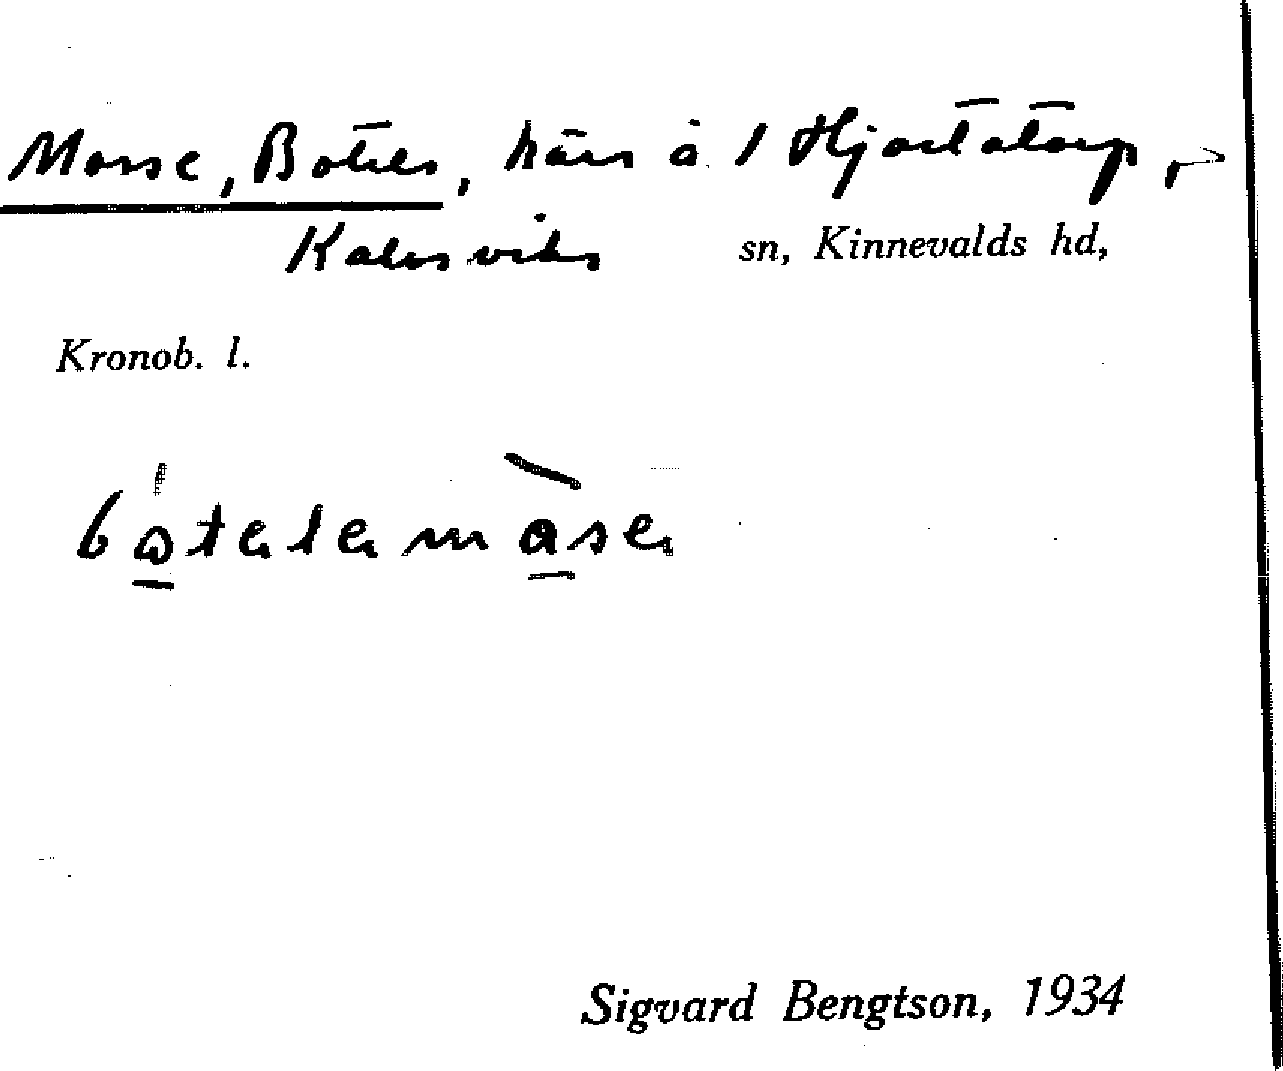 Mosse, Botels, kärr å 1 Hjortatorp,
Kalvsviks sn, Kinnevalds hd,
Kronob. l.
bótələmàsə
Sigvard Bengtson, 1934